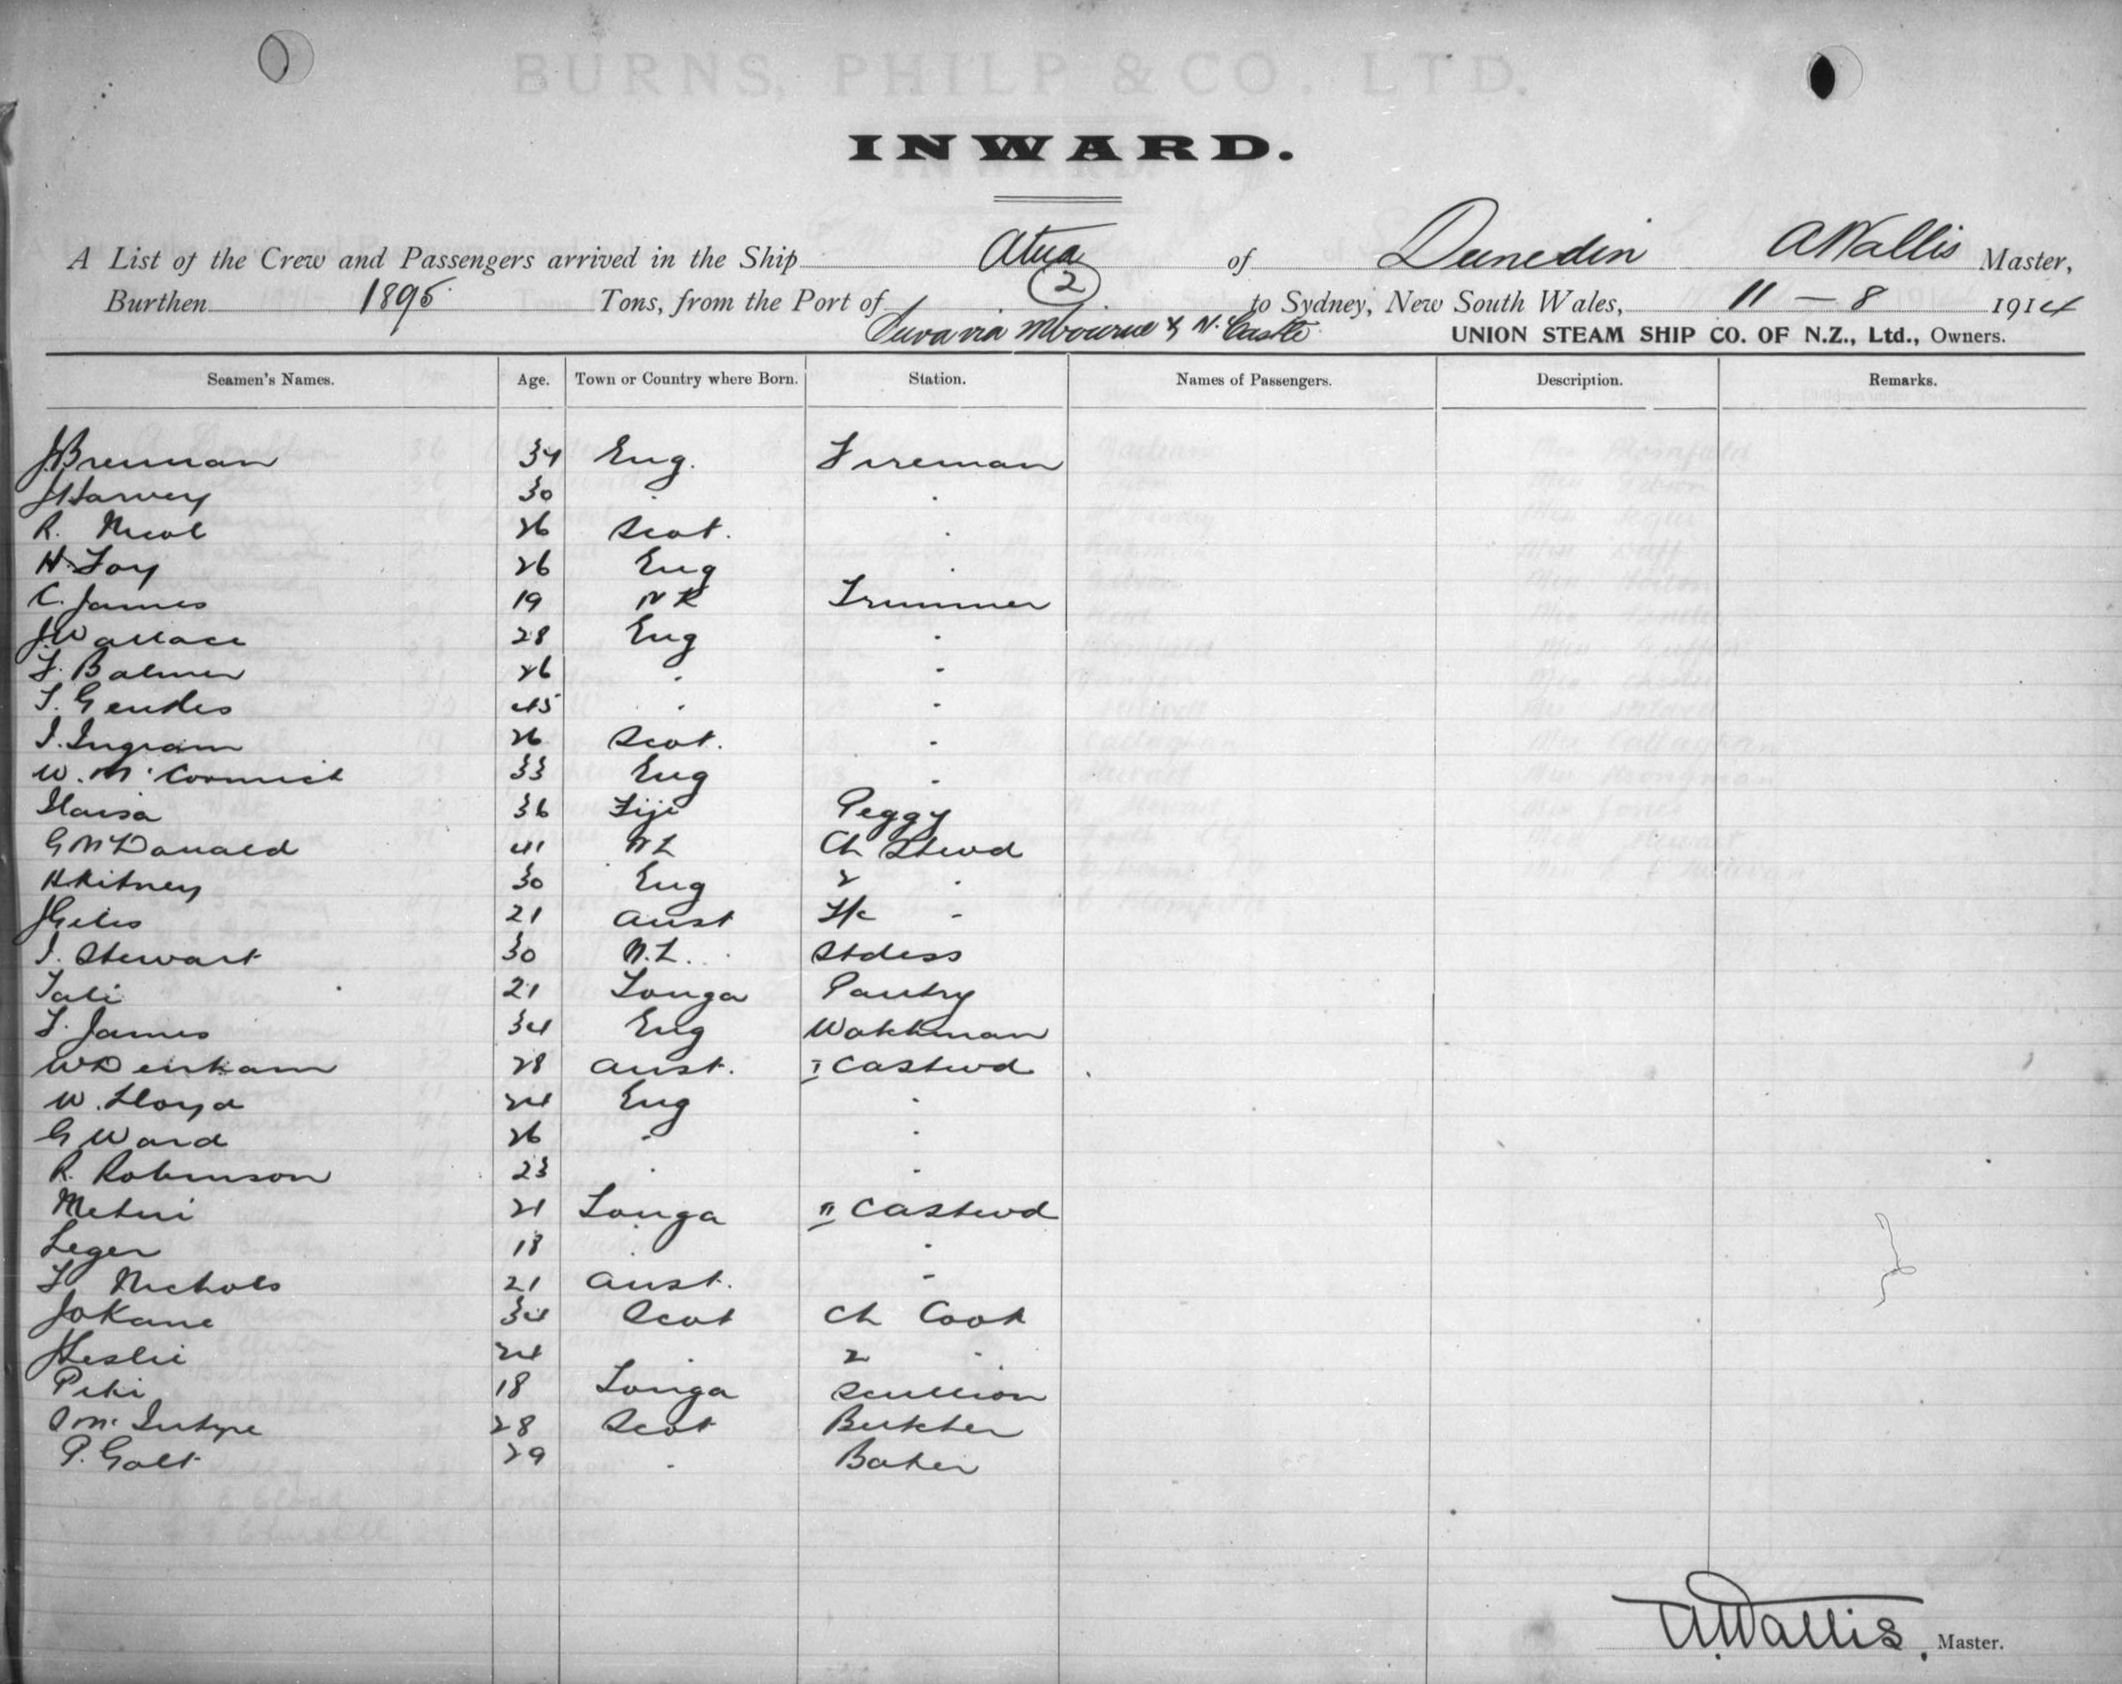 BURNS, PHILP & CO. LTD.
INWARD.
A List of the Crew and Passengers arrived in the Ship Atua of Dunedin A Wallis Master,
2
Burthen 1895 Tons, from the Port of Suva via Mbourne & N. Castle to Sydney, New South Wales, 11 — 8 1914
UNION STEAM SHIP CO. OF N.Z., Ltd., Owners.
Seamen's Names. Age. Town or Country where Born. Station. Names of Passengers. Description. Remarks.
J Brennan 34 Eng. Fireman
J Harvey 30 " "
R. Nicol 26 Scot. "
H Foy 26 Eng "
C. James 19 Trimmer
J. Wallace 28 Eng "
F. Balmer 26 " "
T. 45 " "
J. Ingram 26 Scot. "
W. McCormick 33 Eng "
36 Fiji Peggy
G McDonald 41 NZ Ch Stewd
H Kitney 30 Eng 2 "
J Giles 21 Aust F/c "
J. Stewart 30 N.Z. Stdess
Tali 21 Tonga Pantry
F. James 34 Eng Watchman
W Denham 28 Aust. I CaStwd
W. Lloyd 24 Eng "
G Ward 26 " "
R. Robinson 23 " "
21 Tonga II CaStwd
Leger 18 " "
F. Nichols 21 Aust. "
J O Kane 34 Scot Ch Cook
J Leslie 24 " 2 "
Piki 18 Tonga Scullion
McIntyre 28 Scot Butcher
P. Galt 29 " Baker
A. Wallis. Master.